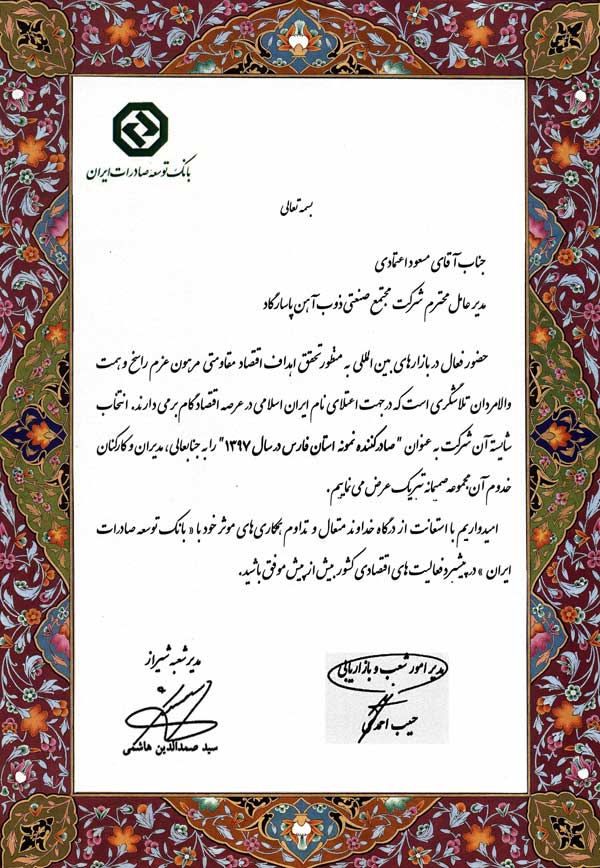 بانک توسعه صادرات ایران
بسمه تعالی
جناب آقای مسعود اعتمادی
مدیر عامل محترم شرکت مجتمع صنعتی ذوب آهن پاسارگاد
حضور فعال در بازارهای بین المللی به منظور تحقق اهداف اقتصاد مقاومتی مرهون عزم راسخ و همت
والامردان تلاشگری است که در جهت اعتلای نام ایران اسلامی در عرصه اقتصاد گام برمی دارند. انتخاب
شایسته آن شرکت به عنوان "صادرکننده نمونه استان فارس در سال ۱۳۹۷" را به جنابعالی، مدیران و کارکنان
خدوم آن مجموعه صمیمانه تبریک عرض می نماییم.
امیدواریم با استعانت از درگاه خداوند متعال و تداوم همکاری های موثر خود با « بانک توسعه صادرات
ایران » در پیشبرد فعالیت های اقتصادی کشور بیش از پیش موفق باشید.
مدیر امور شعب و بازاریابی
حبیب احمدی
مدیر شعبه شیراز
سید صمدالدین هاشمی